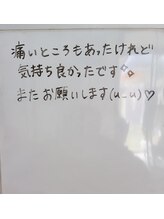 痛いところもあったけれど
気持ち良かったです✨
またお願いします(u_u)♡